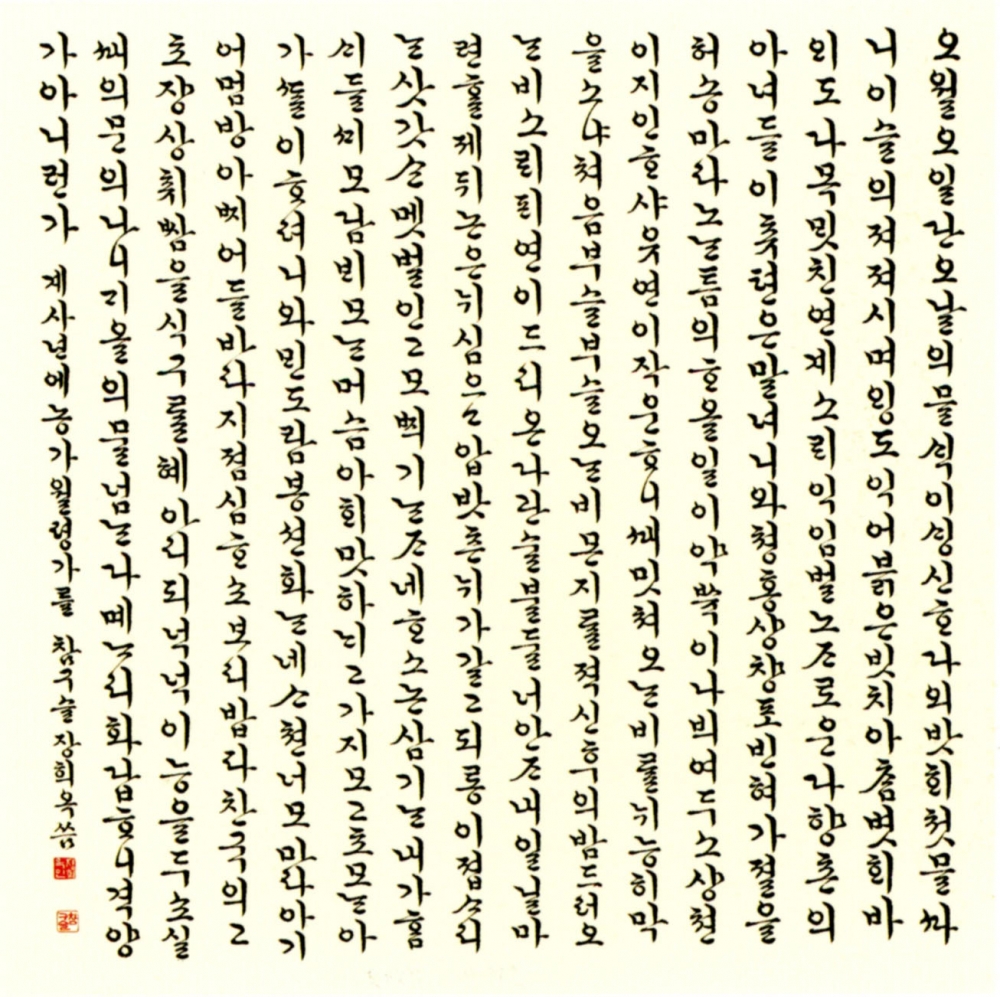 오월오일단오날의믈ᄉᆡᆨ이ᄉᆡᆼ신ᄒᆞ다외밧ᄒᆡ첫믈ᄯᅡ
니이슬의져져시며ᄋᆡᆼ도익어븕은빗치아ᄎᆞᆷ볏ᄒᆡ바
ᄋᆡ도다목ᄆᆡᆺ친연계소ᄅᆡ익임벌노ᄌᆞ로운다향촌의
아녀들이츄쳔은말녀니와쳥홍상창포빈혀가졀을
허송마라노ᄂᆞᆫ틈의ᄒᆞ올일이약ᄡᅮᆨ이나븨여두소상쳔
이지인ᄒᆞ샤유연이작운ᄒᆞ니ᄯᅢ밋쳐오ᄂᆞᆫ비를뉘능히막
을소냐쳐음부슬부슬오ᄂᆞᆫ비몬지를젹신후의밤드러오
ᄂᆞᆫ비소ᄅᆡ픠연이드리온다관솔불둘너안ᄌᆞ내일닐마
련ᄒᆞᆯ제뒤논은뉘심으고압밧츤뉘가갈고되롱이졉ᄉᆞ리
ᄂᆞᆫ삿갓슨몟벌인고모ᄶᅵ기ᄂᆞᆫᄌᆞ네ᄒᆞ소논심기ᄂᆞᆫ내가ᄒᆞᆷ
ᄉᆡ들ᄭᆡ모담ᄇᆡ모ᄂᆞᆫ머슴아희맛하ᄂᆡ고가지모고초모ᄂᆞᆫ아
가ᄯᆞᆯ이ᄒᆞ려니와ᄆᆡᆫ도람봉션화ᄂᆞᆫ네ᄉᆞ쳔너모마라아기
어멈방아ᄶᅵ어들바라지졈심ᄒᆞ소보리밥과찬국의고
초쟝상취ᄡᅡᆷ을식구를혜아리되넉넉이능을두소ᄉᆡᆯ
ᄯᅢ의문의나니ᄀᆡ올의물넘ᄂᆞᆫ다메ᄂᆞ리화답ᄒᆞ니격양
가아니런가 계사년에농가월령가를 참구슬장희옥씀